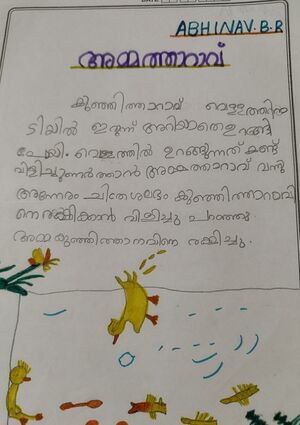 ABHINAV.B.R
അമ്മത്താറാവ്
കുഞ്ഞിത്താറാവ് വെള്ളത്തിന
ടിയിൽ ഇരുന്ന് അറിയാതെ ഉറങ്ങി
പ്പോയി. വെള്ളത്തിൽ ഉറങ്ങുന്നത് കണ്ട്
വിളിച്ചുണർത്താൻ അമ്മത്താറാവ് വന്നു
അന്നേരം ചിത്രശലഭം കുഞ്ഞിത്താറാവി
നെ രക്ഷിക്കാൻ വിളിച്ചു പറഞ്ഞു
അമ്മ കുഞ്ഞിത്താറാവിനെ രക്ഷിച്ചു.